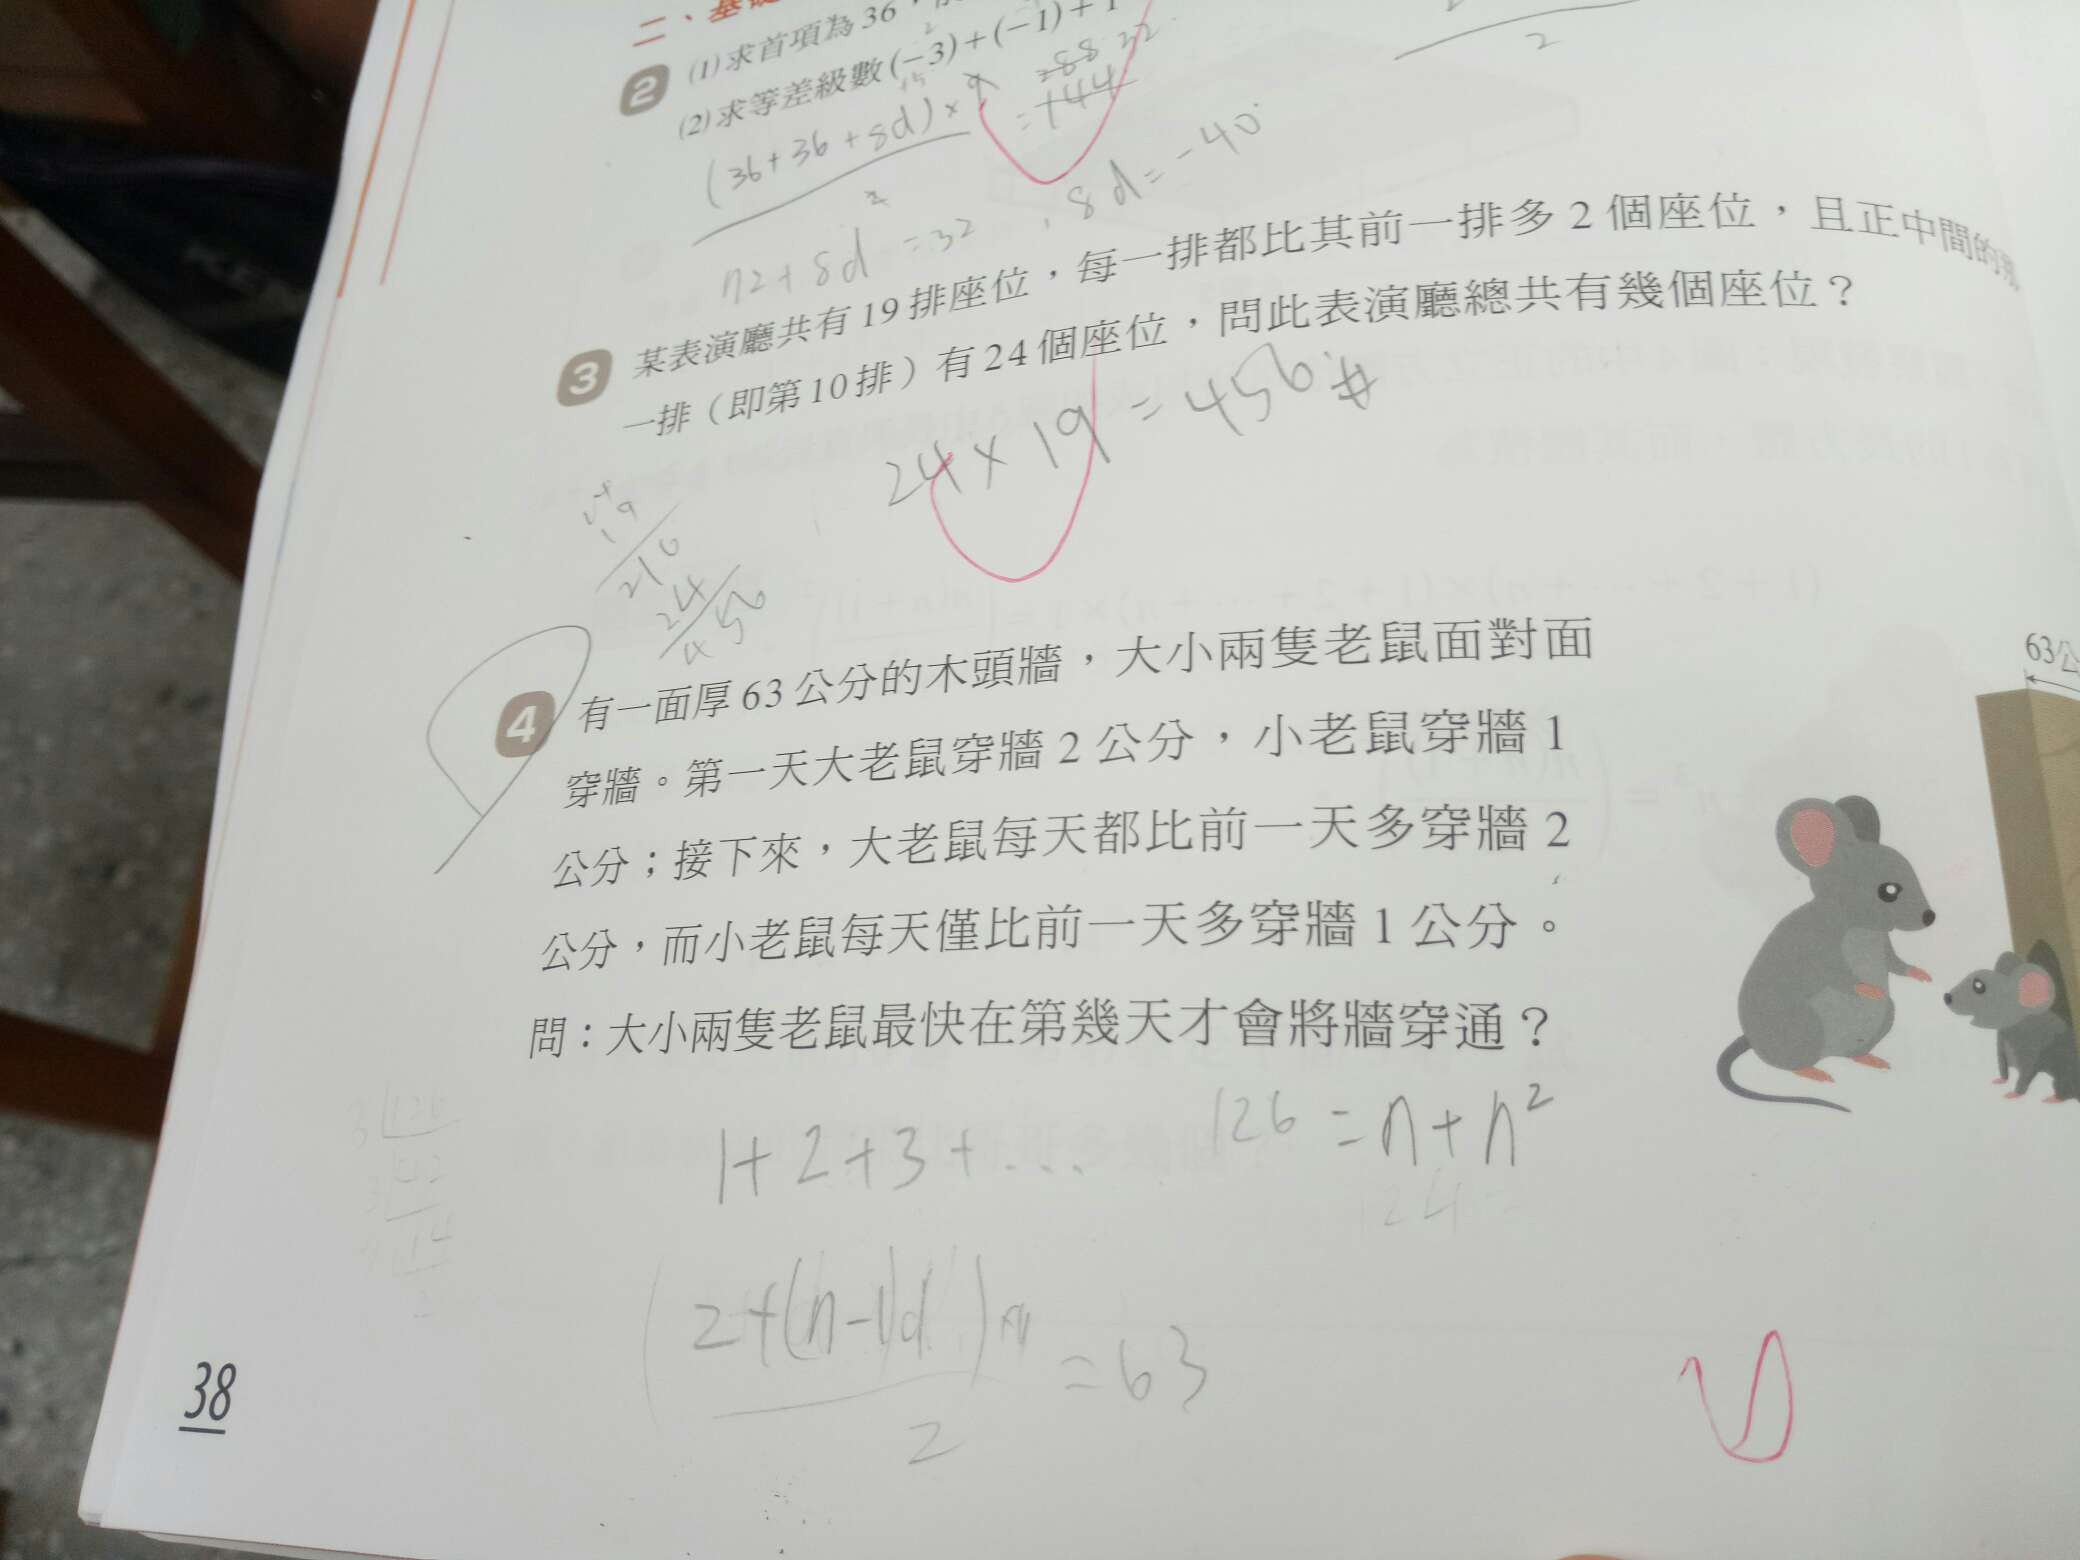 二、基礎
2 (1)求首項為36，
(2)求等差級數(−3)+(−1)+1
2
(36+36+8d)×9
2
=88 32
=144
72+8d=32，8d=-40
3 某表演廳共有19排座位，每一排都比其前一排多2個座位，且正中間的那
一排（即第10排）有24個座位，問此表演廳總共有幾個座位？
24×19=456#
19
216
24
456
4 有一面厚63公分的木頭牆，大小兩隻老鼠面對面
穿牆。第一天大老鼠穿牆2公分，小老鼠穿牆1
公分；接下來，大老鼠每天都比前一天多穿牆2
公分，而小老鼠每天僅比前一天多穿牆1公分。
問：大小兩隻老鼠最快在第幾天才會將牆穿通？
63公
1+2+3+...
126=n+n²
24=
(2+(n-1)d)×n
2
=63
38